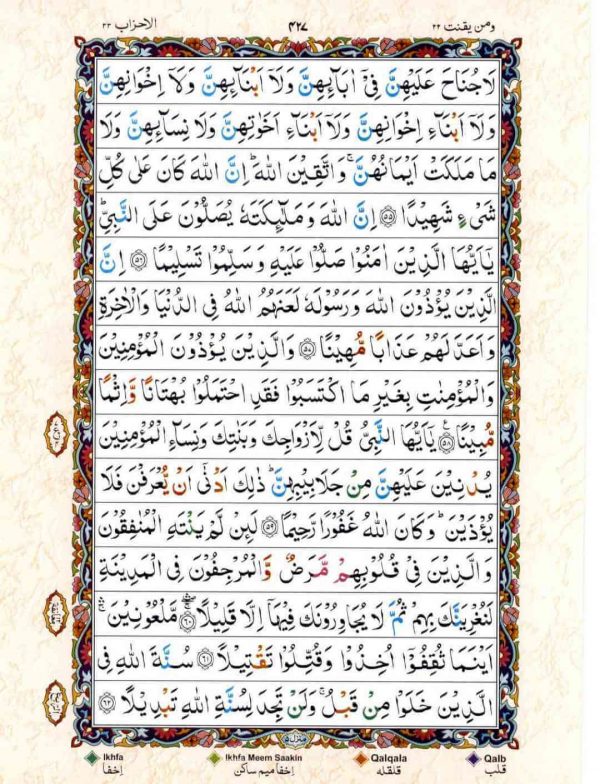 ومن يقنت ٢٢ ٤٢٧ الاحزاب ٣٣
لَا جُنَاحَ عَلَيْهِنَّ فِىْۤ اٰبَآئِهِنَّ وَلَاۤ اَبْنَآئِهِنَّ وَلَاۤ اِخْوَانِهِنَّ
وَلَاۤ اَبْنَآءِ اِخْوَانِهِنَّ وَلَاۤ اَبْنَآءِ اَخَوٰتِهِنَّ وَلَا نِسَآئِهِنَّ وَلَا
مَا مَلَكَتْ اَيْمَانُهُنَّ ۚ وَاتَّقِيْنَ اللّٰهَ ؕ اِنَّ اللّٰهَ كَانَ عَلٰى كُلِّ
شَىْءٍ شَهِيْدًا ﴿۵۵﴾ اِنَّ اللّٰهَ وَمَلٰٓئِكَتَهٗ يُصَلُّوْنَ عَلَى النَّبِىِّ ؕ
يٰۤاَيُّهَا الَّذِيْنَ اٰمَنُوْا صَلُّوْا عَلَيْهِ وَسَلِّمُوْا تَسْلِيْمًا ﴿۵۶﴾ اِنَّ
الَّذِيْنَ يُؤْذُوْنَ اللّٰهَ وَرَسُوْلَهٗ لَعَنَهُمُ اللّٰهُ فِى الدُّنْيَا وَالْاٰخِرَةِ
وَاَعَدَّ لَهُمْ عَذَابًا مُّهِيْنًا ﴿۵۷﴾ وَالَّذِيْنَ يُؤْذُوْنَ الْمُؤْمِنِيْنَ
وَالْمُؤْمِنٰتِ بِغَيْرِ مَا اكْتَسَبُوْا فَقَدِ احْتَمَلُوْا بُهْتَانًا وَّاِثْمًا
مُّبِيْنًا ﴿۵۸﴾ يٰۤاَيُّهَا النَّبِىُّ قُلْ لِّاَزْوَاجِكَ وَبَنٰتِكَ وَنِسَآءِ الْمُؤْمِنِيْنَ
يُدْنِيْنَ عَلَيْهِنَّ مِنْ جَلَابِيْبِهِنَّ ؕ ذٰلِكَ اَدْنٰٓى اَنْ يُّعْرَفْنَ فَلَا
يُؤْذَيْنَ ؕ وَكَانَ اللّٰهُ غَفُوْرًا رَّحِيْمًا ﴿۵۹﴾ لَئِنْ لَّمْ يَنْتَهِ الْمُنٰفِقُوْنَ
وَالَّذِيْنَ فِىْ قُلُوْبِهِمْ مَّرَضٌ وَّالْمُرْجِفُوْنَ فِى الْمَدِيْنَةِ
لَنُغْرِيَنَّكَ بِهِمْ ثُمَّ لَا يُجَاوِرُوْنَكَ فِيْهَاۤ اِلَّا قَلِيْلًا ﴿۶۰﴾ مَّلْعُوْنِيْنَ
اَيْنَمَا ثُقِفُوْۤا اُخِذُوْا وَقُتِّلُوْا تَقْتِيْلًا ﴿۶۱﴾ سُنَّةَ اللّٰهِ فِى
الَّذِيْنَ خَلَوْا مِنْ قَبْلُ ۚ وَلَنْ تَجِدَ لِسُنَّةِ اللّٰهِ تَبْدِيْلًا ﴿۶۲﴾
منزل ۵
Ikhfa Ikhfa Meem Saakin Qalqala Qalb
اِخفَا اِخفَا میم ساکن قلقلہ قلب